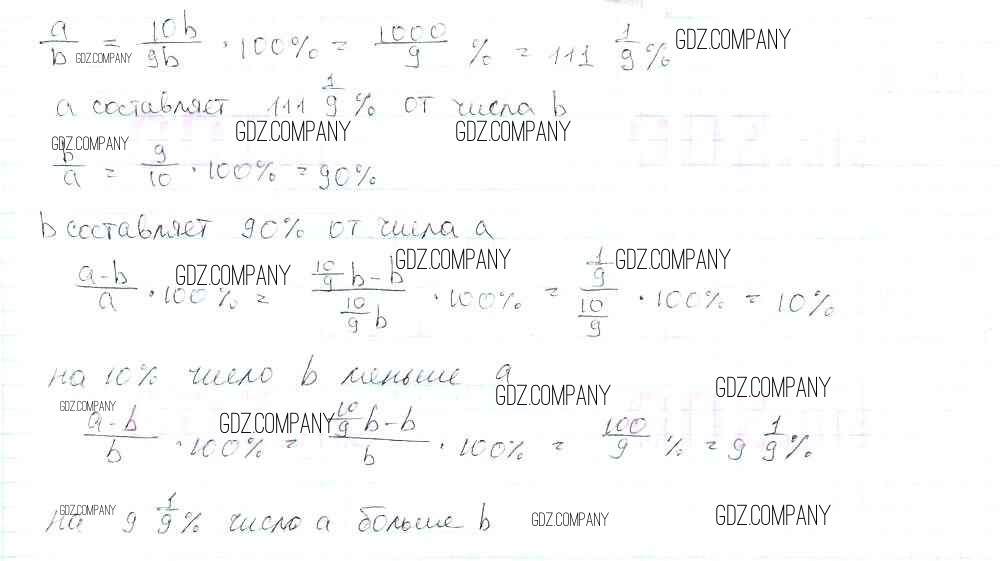 a/b = 10b/9b · 100% = 1000/9 % = 111 1/9 % GDZ.COMPANY
GDZ.COMPANY
a составляет 111 1/9 % от числа b
GDZ.COMPANY GDZ.COMPANY GDZ.COMPANY
b/a = 9/10 · 100% = 90%
b составляет 90% от числа a
GDZ.COMPANY GDZ.COMPANY GDZ.COMPANY
(a-b)/a · 100% = (10/9 b - b)/(10/9 b) · 100% = (1/9)/(10/9) · 100% = 10%
на 10% число b меньше a
GDZ.COMPANY GDZ.COMPANY
GDZ.COMPANY GDZ.COMPANY
(a-b)/b · 100% = (10/9 b - b)/b · 100% = 100/9 % = 9 1/9 %
GDZ.COMPANY
на 9 1/9 % число a больше b GDZ.COMPANY GDZ.COMPANY